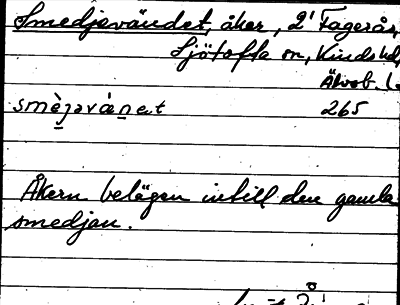 Smedjevändet, åker, 2' Fagerås,
Sjötofta sn, Kinds hd,
Älvsb. l.
smèjəvànət 265
Åkern belägen intill den gamla
smedjan.